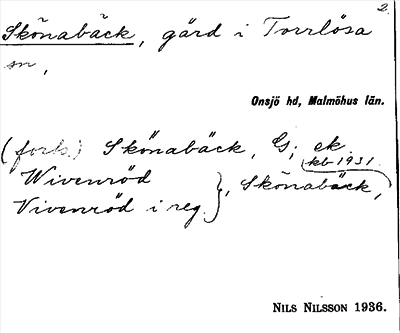 2.
Skönabäck, gård i Torrlösa
sn,
Onsjö hd, Malmöhus län.
(forts.) Skönabäck, G; ek.
kb 1931.
Wivenröd
Vivenröd i reg. }, Skönabäck,
NILS NILSSON 1936.